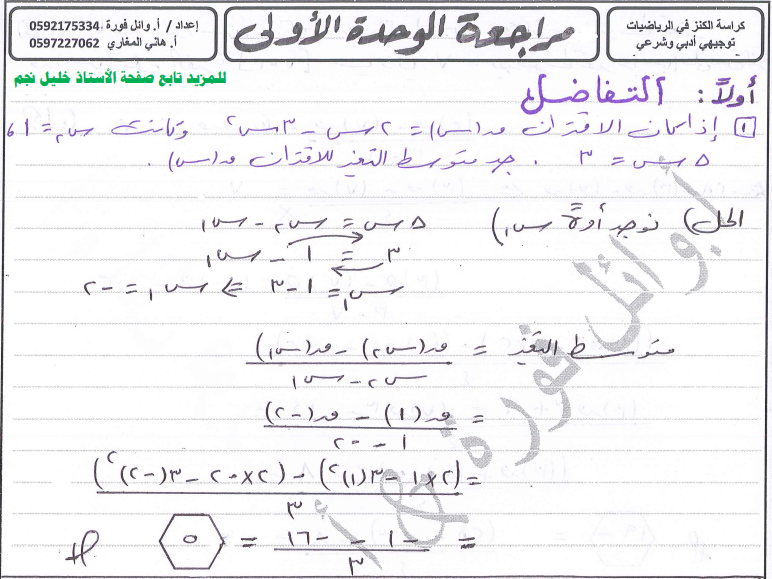 كراسة الكنز في الرياضيات
توجيهي أدبي وشرعي
مراجعة الوحدة الأولى
إعداد / أ. وائل فورة 0592175334
أ. هاني المغاري 0597227062
للمزيد تابع صفحة الأستاذ خليل نجم
أولاً: التفاضل
١ إذا كان الاقتران ق(س) = ٢س - ٣س² وكانت س₂ = ١ ،
Δس = ٣ . جد متوسط التغير للاقتران ق(س) .
الحل) نوجد أولاً س₁) Δس = س₂ - س₁
٣ = ١ - س₁
س₁ = ١-٣ ⇐ س₁ = -٢
متوسط التغير = (ق(س₂) - ق(س₁)) / (س₂ - س₁)
= (ق(١) - ق(-٢)) / (١ - -٢)
= ((٢×١ - ٣(١)²) - (٢×-٢ - ٣(-٢)²)) / ٣
= (-١ - -١٦) / ٣ = ٥ #
أ. وائل فورة & أ